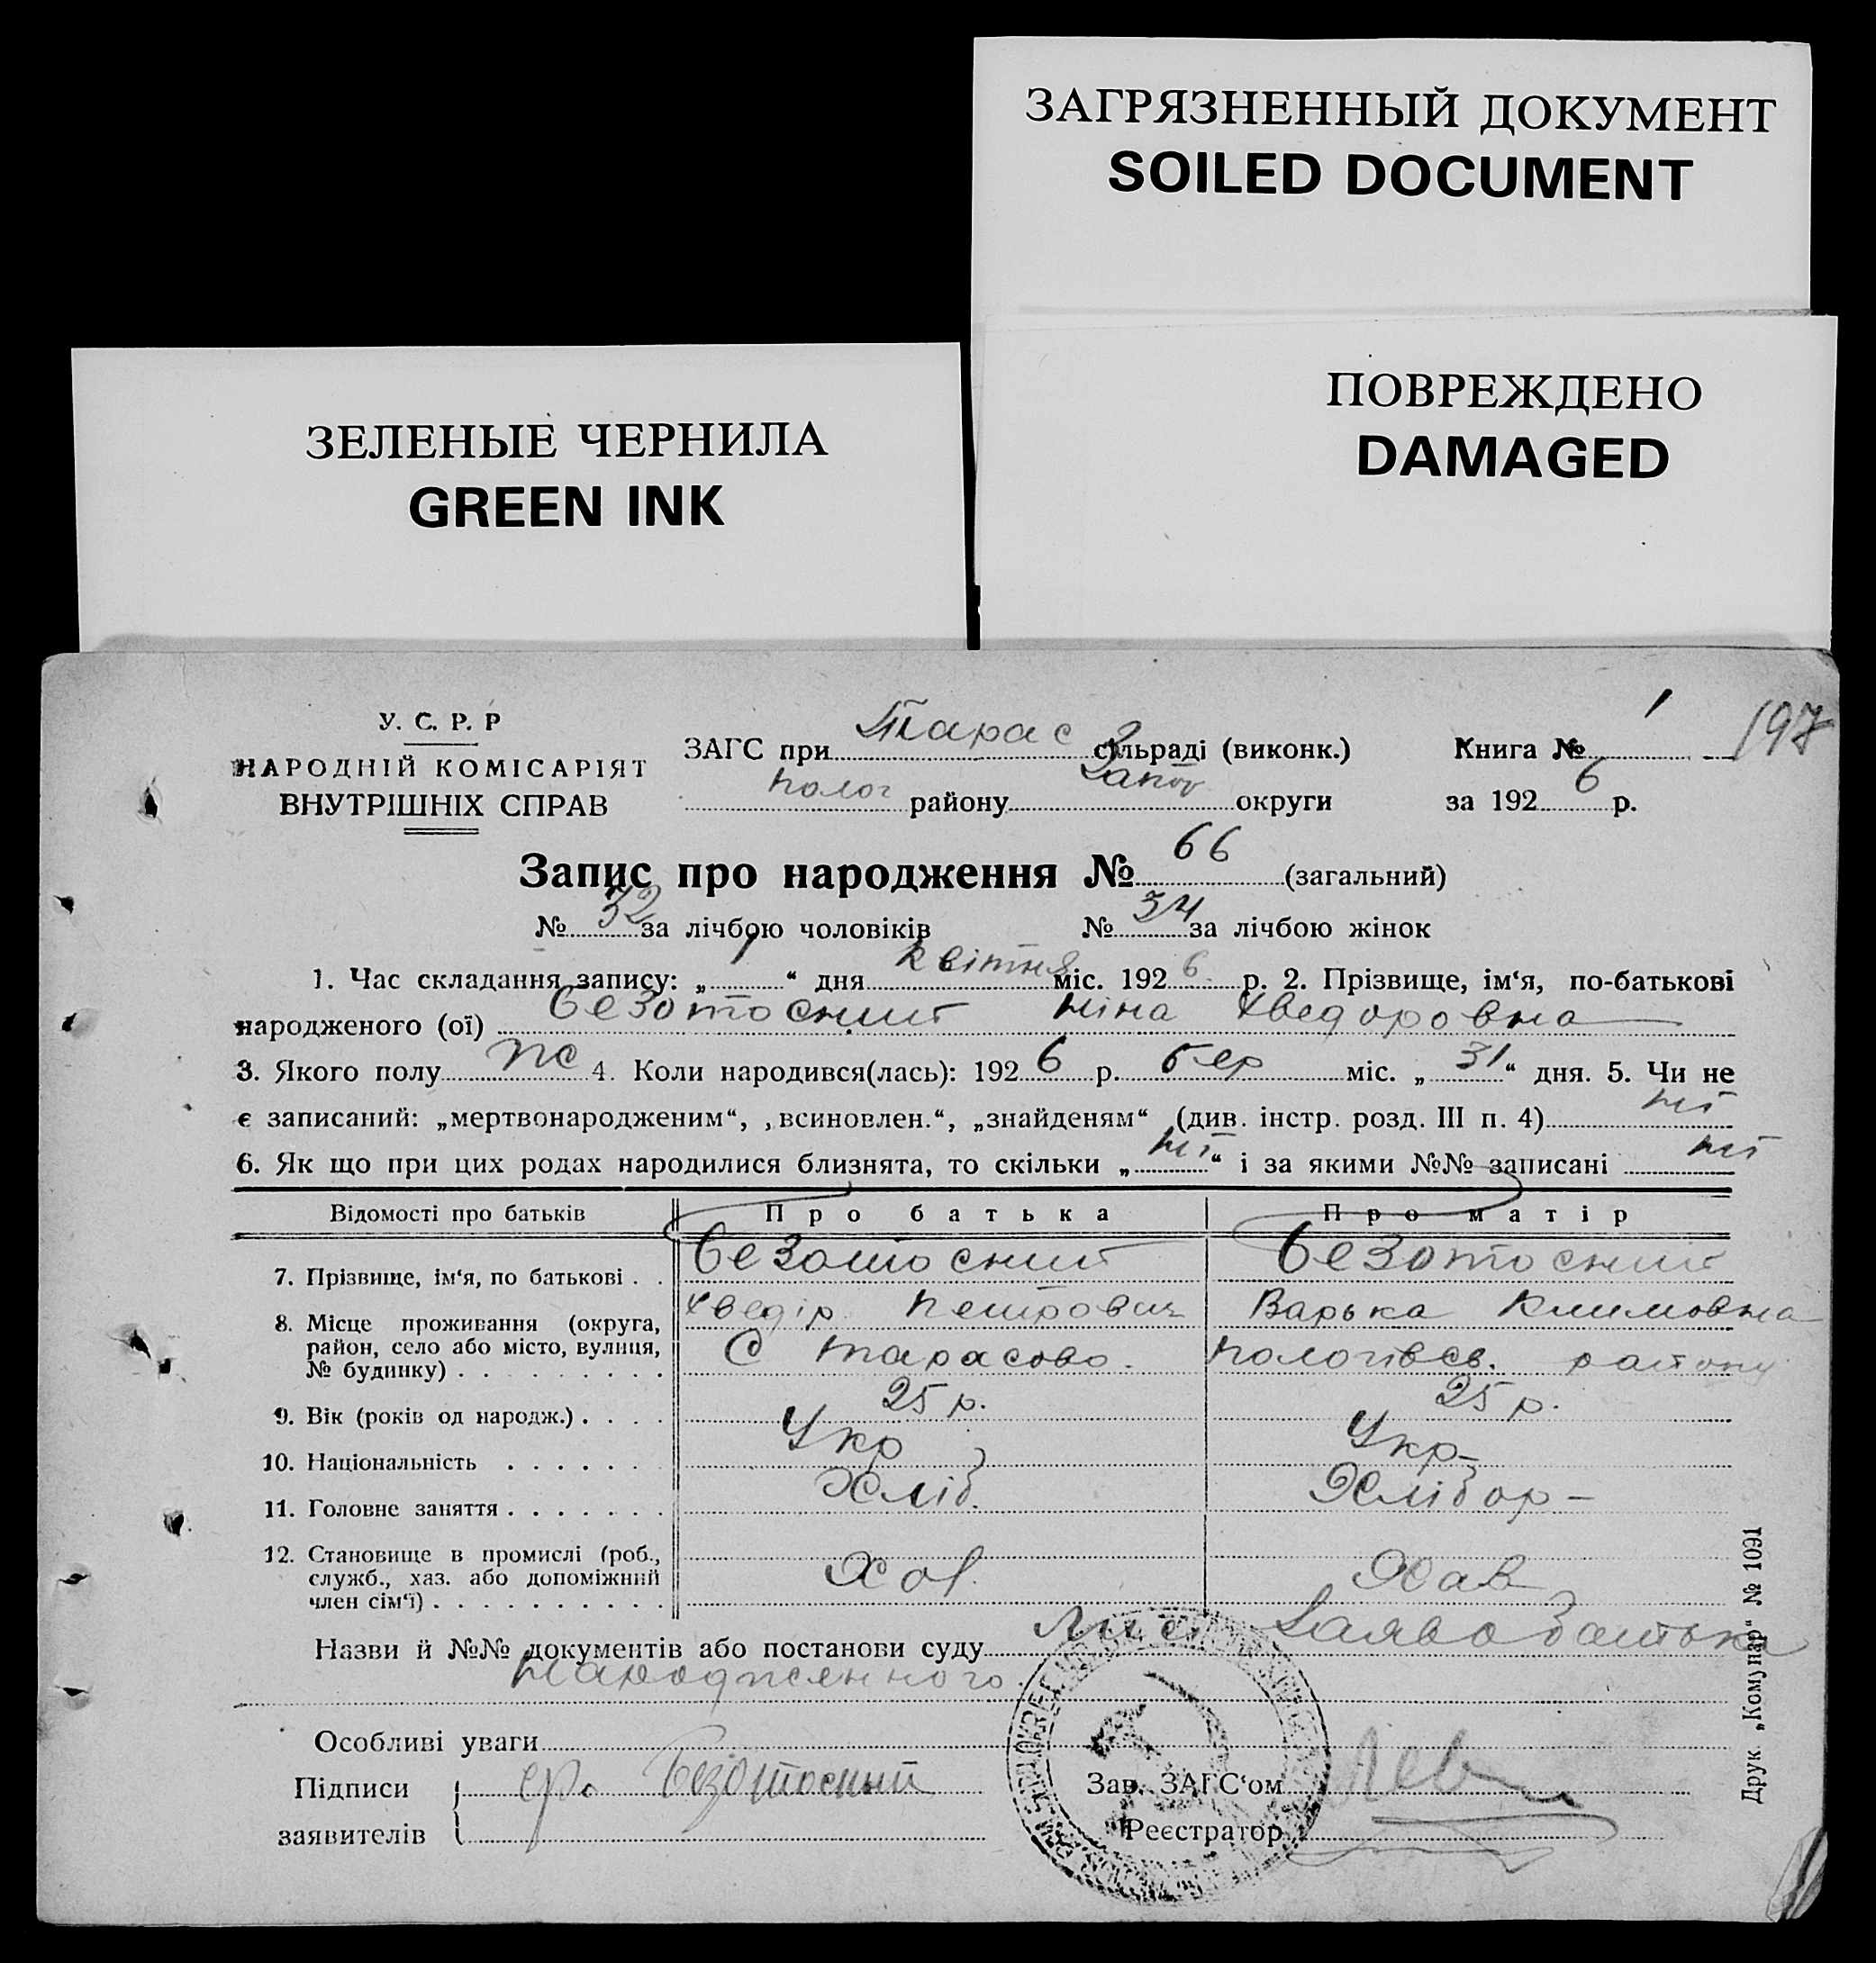 ЗАГРЯЗНЕННЫЙ ДОКУМЕНТ
SOILED DOCUMENT
ПОВРЕЖДЕНО
DAMAGED
ЗЕЛЕНЫЕ ЧЕРНИЛА
GREEN INK
У. С. Р. Р
НАРОДНІЙ КОМІСАРІЯТ
ВНУТРІШНІХ СПРАВ
ЗАГС при Тарас сільраді (виконк.) Книга № 197
полог району Запор округи за 1926 р.
Запис про народження № 66 (загальний)
№ 32 за лічбою чоловіків № 34 за лічбою жінок
1. Час складання запису: „1“ дня квітня міс. 1926 р. 2. Прізвище, ім‘я, по-батькові
народженого (ої) безотосний ніна хведоровна
3. Якого полу жс 4. Коли народився(лась): 1926 р. бер міс. „31“ дня. 5. Чи не
є записаний: „мертвонародженим“, „всиновлен.“, „знайденям“ (див. інстр. розд. III п. 4) ні
6. Як що при цих родах народилися близнята, то скільки „ні“ і за якими №№ записані ні
Відомості про батьків Про батька Про матір
7. Прізвище, ім‘я, по батькові . . безотосний безотосний
хведір петрович Варька Климовна
8. Місце проживання (округа, район, село або місто, вулиця, № будинку) . . . . . . . . . С тарасово. пологівсв. району
9. Вік (років од народж.) . . . . 25 р. 25 р.
10. Національність . . . . . . . Укр Укр
11. Головне заняття . . . . . . . Хліб. Хлібор-
12. Становище в промислі (роб., служб., хаз. або допоміжний член сім‘ї) . . . . . . . . . . Хаз
Назви й №№ документів або постанови суду Заява батька
народженного
Особливі уваги
Підписи Безотосный
заявителів
Зав. ЗАГС‘ом
Реєстратор
Друк. „Комунар“ № 1091